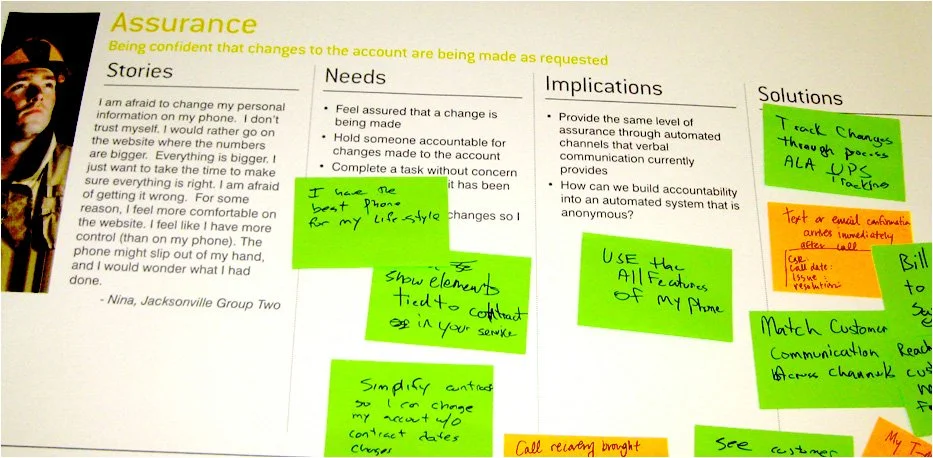 Assurance
Being confident that changes to the account are being made as requested
Stories
I am afraid to change my personal
information on my phone. I don't
trust myself. I would rather go on
the website where the numbers
are bigger. Everything is bigger. I
just want to take the time to make
sure everything is right. I am afraid
of getting it wrong. For some
reason, I feel more comfortable on
the website. I feel like I have more
control (than on my phone). The
phone might slip out of my hand,
and I would wonder what I had
done.
- Nina, Jacksonville Group Two
Needs
• Feel assured that a change is
being made
• Hold someone accountable for
changes made to the account
• Complete a task without concern
it has been
changes so I
I have the
best phone
for my Lifestyle
show elements
tied to contract
in your service
Simplify contract
so I can change
my account w/o
contract dates
changes
Call recovery brought
Implications
• Provide the same level of
assurance through automated
channels that verbal
communication currently
provides
• How can we build accountability
into an automated system that is
anonymous?
USE the
All Features
of my phone
See customer
Solutions
Track Changes
through process
ALA UPS
Tracking
Text or email confirmation
arrives immediately
after call
CSR:
Call date:
issue:
resolution:
Bill
to
Match Customer
Communication
Across channels
Reach
My